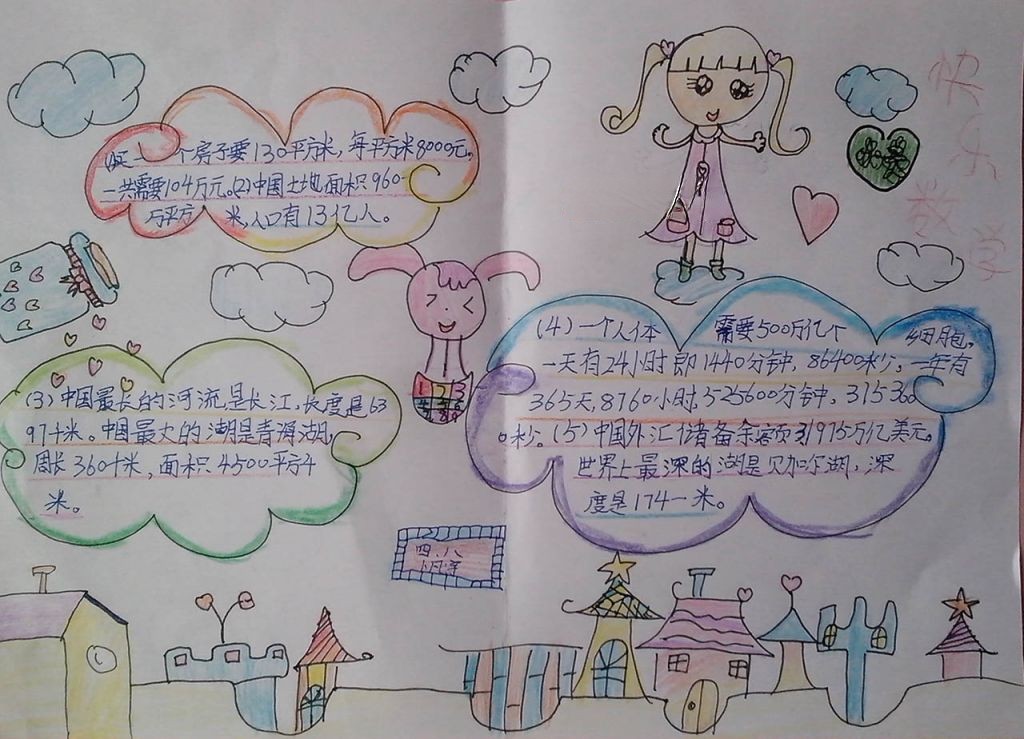 快乐数学
买一个房子要130平方米，每平方米8000元。
一共需要104万元。(2)中国土地面积960
万平方 米，人口有13亿人。
(3)中国最长的河流是长江，长度是63
97千米。中国最大的湖是青海湖，
周长360千米，面积4500平方千
米。
(4)一个人体 需要500万亿个 细胞。
一天有24小时即1440分钟，86400秒。一年有
365天，8760小时，525600分钟，315360
0秒。(5)中国外汇储备余额31975万亿美元。
世界上最深的湖是贝加尔湖，深
度是174一米。
四.八